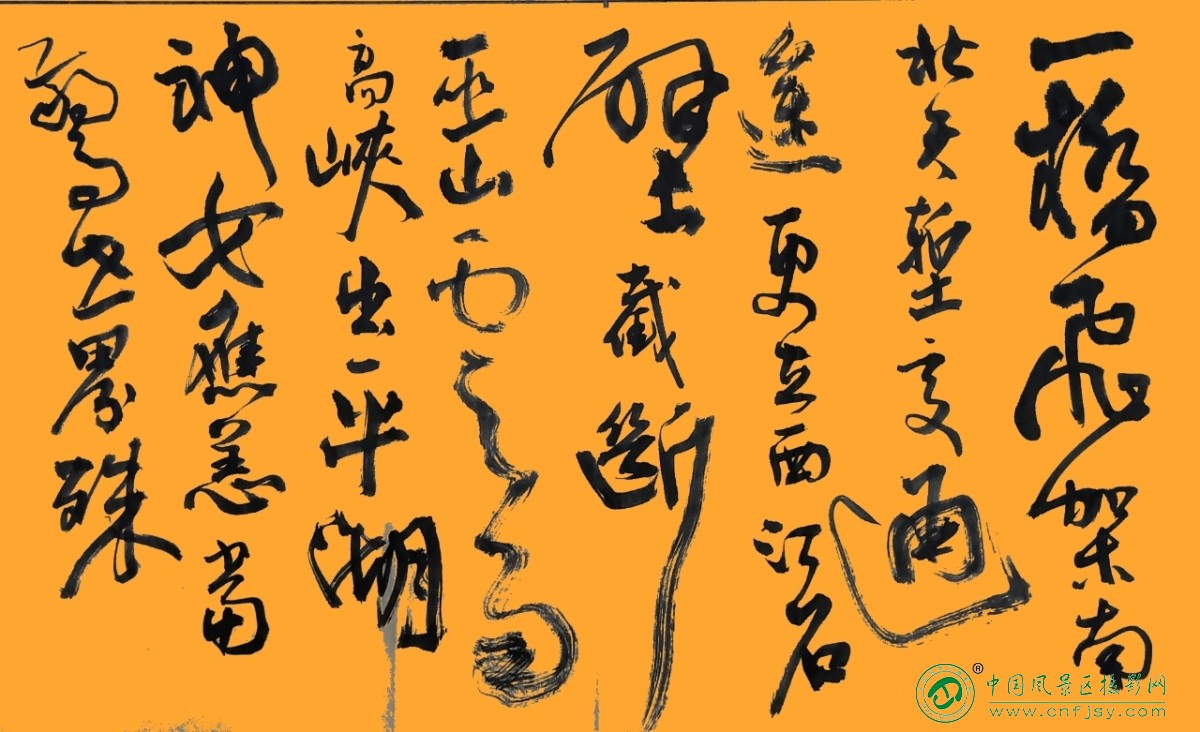 一橋飛架南
北天塹變通
途更立西江石
壁截斷
巫山雲雨
高峽出平湖
神女應恙當
驚世界殊
®
中国风景区摄影网
www.cnfjsy.com